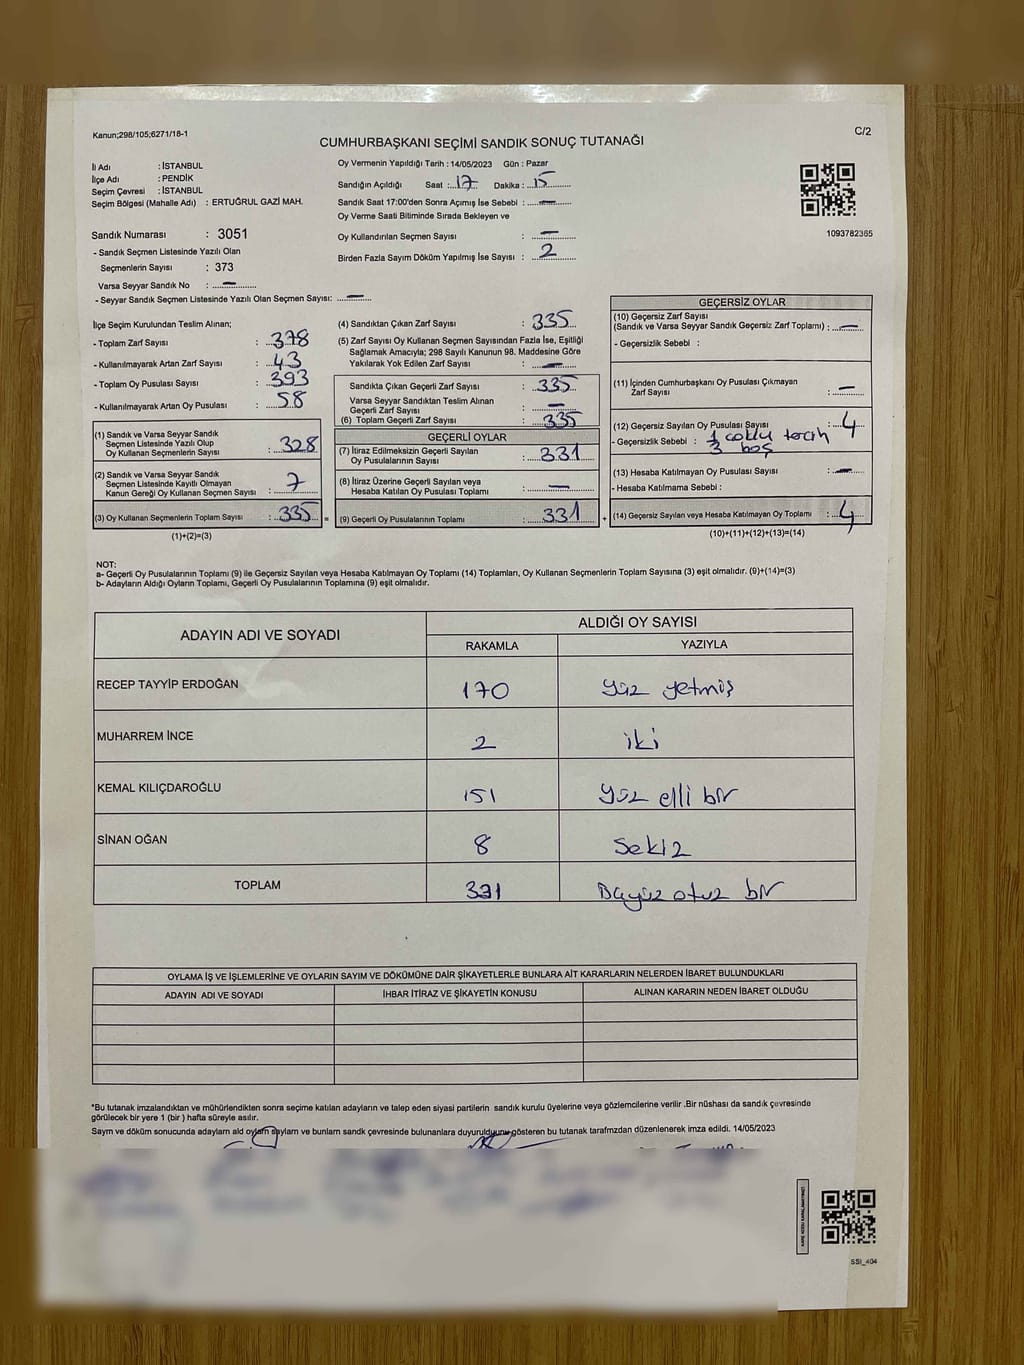 Kanun;298/105;6271/18-1
C/2
CUMHURBAŞKANI SEÇİMİ SANDIK SONUÇ TUTANAĞI
İl Adı : İSTANBUL
İlçe Adı : PENDİK
Seçim Çevresi : İSTANBUL
Seçim Bölgesi (Mahalle Adı) : ERTUĞRUL GAZİ MAH.
Sandık Numarası : 3051
- Sandık Seçmen Listesinde Yazılı Olan
Seçmenlerin Sayısı : 373
Varsa Seyyar Sandık No : —
- Seyyar Sandık Seçmen Listesinde Yazılı Olan Seçmen Sayısı: —
Oy Vermenin Yapıldığı Tarih : 14/05/2023 Gün : Pazar
Sandığın Açıldığı Saat : 17 Dakika : 15
Sandık Saat 17:00'den Sonra Açımış İse Sebebi : —
Oy Verme Saati Bitiminde Sırada Bekleyen ve
Oy Kullandırılan Seçmen Sayısı : —
Birden Fazla Sayım Döküm Yapılmış İse Sayısı : 2
1093782365
İlçe Seçim Kurulundan Teslim Alınan;
- Toplam Zarf Sayısı : 378
- Kullanılmayarak Artan Zarf Sayısı : 43
- Toplam Oy Pusulası Sayısı : 393
- Kullanılmayarak Artan Oy Pusulası : 58
(1) Sandık ve Varsa Seyyar Sandık
Seçmen Listesinde Yazılı Olup
Oy Kullanan Seçmenlerin Sayısı : 328
(2) Sandık ve Varsa Seyyar Sandık
Seçmen Listesinde Kayıtlı Olmayan
Kanun Gereği Oy Kullanan Seçmen Sayısı : 7
(3) Oy Kullanan Seçmenlerin Toplam Sayısı : 335 =
(1)+(2)=(3)
(4) Sandıktan Çıkan Zarf Sayısı : 335
(5) Zarf Sayısı Oy Kullanan Seçmen Sayısından Fazla İse, Eşitliği
Sağlamak Amacıyla; 298 Sayılı Kanunun 98. Maddesine Göre
Yakılarak Yok Edilen Zarf Sayısı : —
Sandıkta Çıkan Geçerli Zarf Sayısı : 335
Varsa Seyyar Sandıktan Teslim Alınan
Geçerli Zarf Sayısı : —
(6) Toplam Geçerli Zarf Sayısı : 335
GEÇERLİ OYLAR
(7) İtiraz Edilmeksizin Geçerli Sayılan
Oy Pusulalarının Sayısı : 331
(8) İtiraz Üzerine Geçerli Sayılan veya
Hesaba Katılan Oy Pusulası Toplamı : —
(9) Geçerli Oy Pusulalarının Toplamı : 331 +
GEÇERSİZ OYLAR
(10) Geçersiz Zarf Sayısı
(Sandık ve Varsa Seyyar Sandık Geçersiz Zarf Toplamı) : —
- Geçersizlik Sebebi :
(11) İçinden Cumhurbaşkanı Oy Pusulası Çıkmayan
Zarf Sayısı : —
(12) Geçersiz Sayılan Oy Pusulası Sayısı : 4
- Geçersizlik Sebebi : 1 çoklu tercih
3 boş
(13) Hesaba Katılmayan Oy Pusulası Sayısı : —
- Hesaba Katılmama Sebebi :
(14) Geçersiz Sayılan veya Hesaba Katılmayan Oy Toplamı : 4
(10)+(11)+(12)+(13)=(14)
NOT:
a- Geçerli Oy Pusulalarının Toplamı (9) ile Geçersiz Sayılan veya Hesaba Katılmayan Oy Toplamı (14) Toplamları, Oy Kullanan Seçmenlerin Toplam Sayısına (3) eşit olmalıdır. (9)+(14)=(3)
b- Adayların Aldığı Oyların Toplamı, Geçerli Oy Pusulalarının Toplamına (9) eşit olmalıdır.
ADAYIN ADI VE SOYADI ALDIĞI OY SAYISI
RAKAMLA YAZIYLA
RECEP TAYYİP ERDOĞAN 170 yüz yetmiş
MUHARREM İNCE 2 iki
KEMAL KILIÇDAROĞLU 151 yüz elli bir
SİNAN OĞAN 8 Sekiz
TOPLAM 331 üçyüz otuz bir
OYLAMA İŞ VE İŞLEMLERİNE VE OYLARIN SAYIM VE DÖKÜMÜNE DAİR ŞİKAYETLERLE BUNLARA AİT KARARLARIN NELERDEN İBARET BULUNDUKLARI
ADAYIN ADI VE SOYADI İHBAR İTİRAZ VE ŞİKAYETİN KONUSU ALINAN KARARIN NEDEN İBARET OLDUĞU
*Bu tutanak imzalandıktan ve mühürlendikten sonra seçime katılan adayların ve talep eden siyasi partilerin sandık kurulu üyelerine veya gözlemcilerine verilir .Bir nüshası da sandık çevresinde
görülecek bir yere 1 (bir ) hafta süreyle asılır.
Sayım ve döküm sonucunda adayların aldı oyların sayıları ve bunların sandık çevresinde bulunanlara duyurulduğunu gösteren bu tutanak tarafımızdan düzenlenerek imza edildi. 14/05/2023
SSİ_404